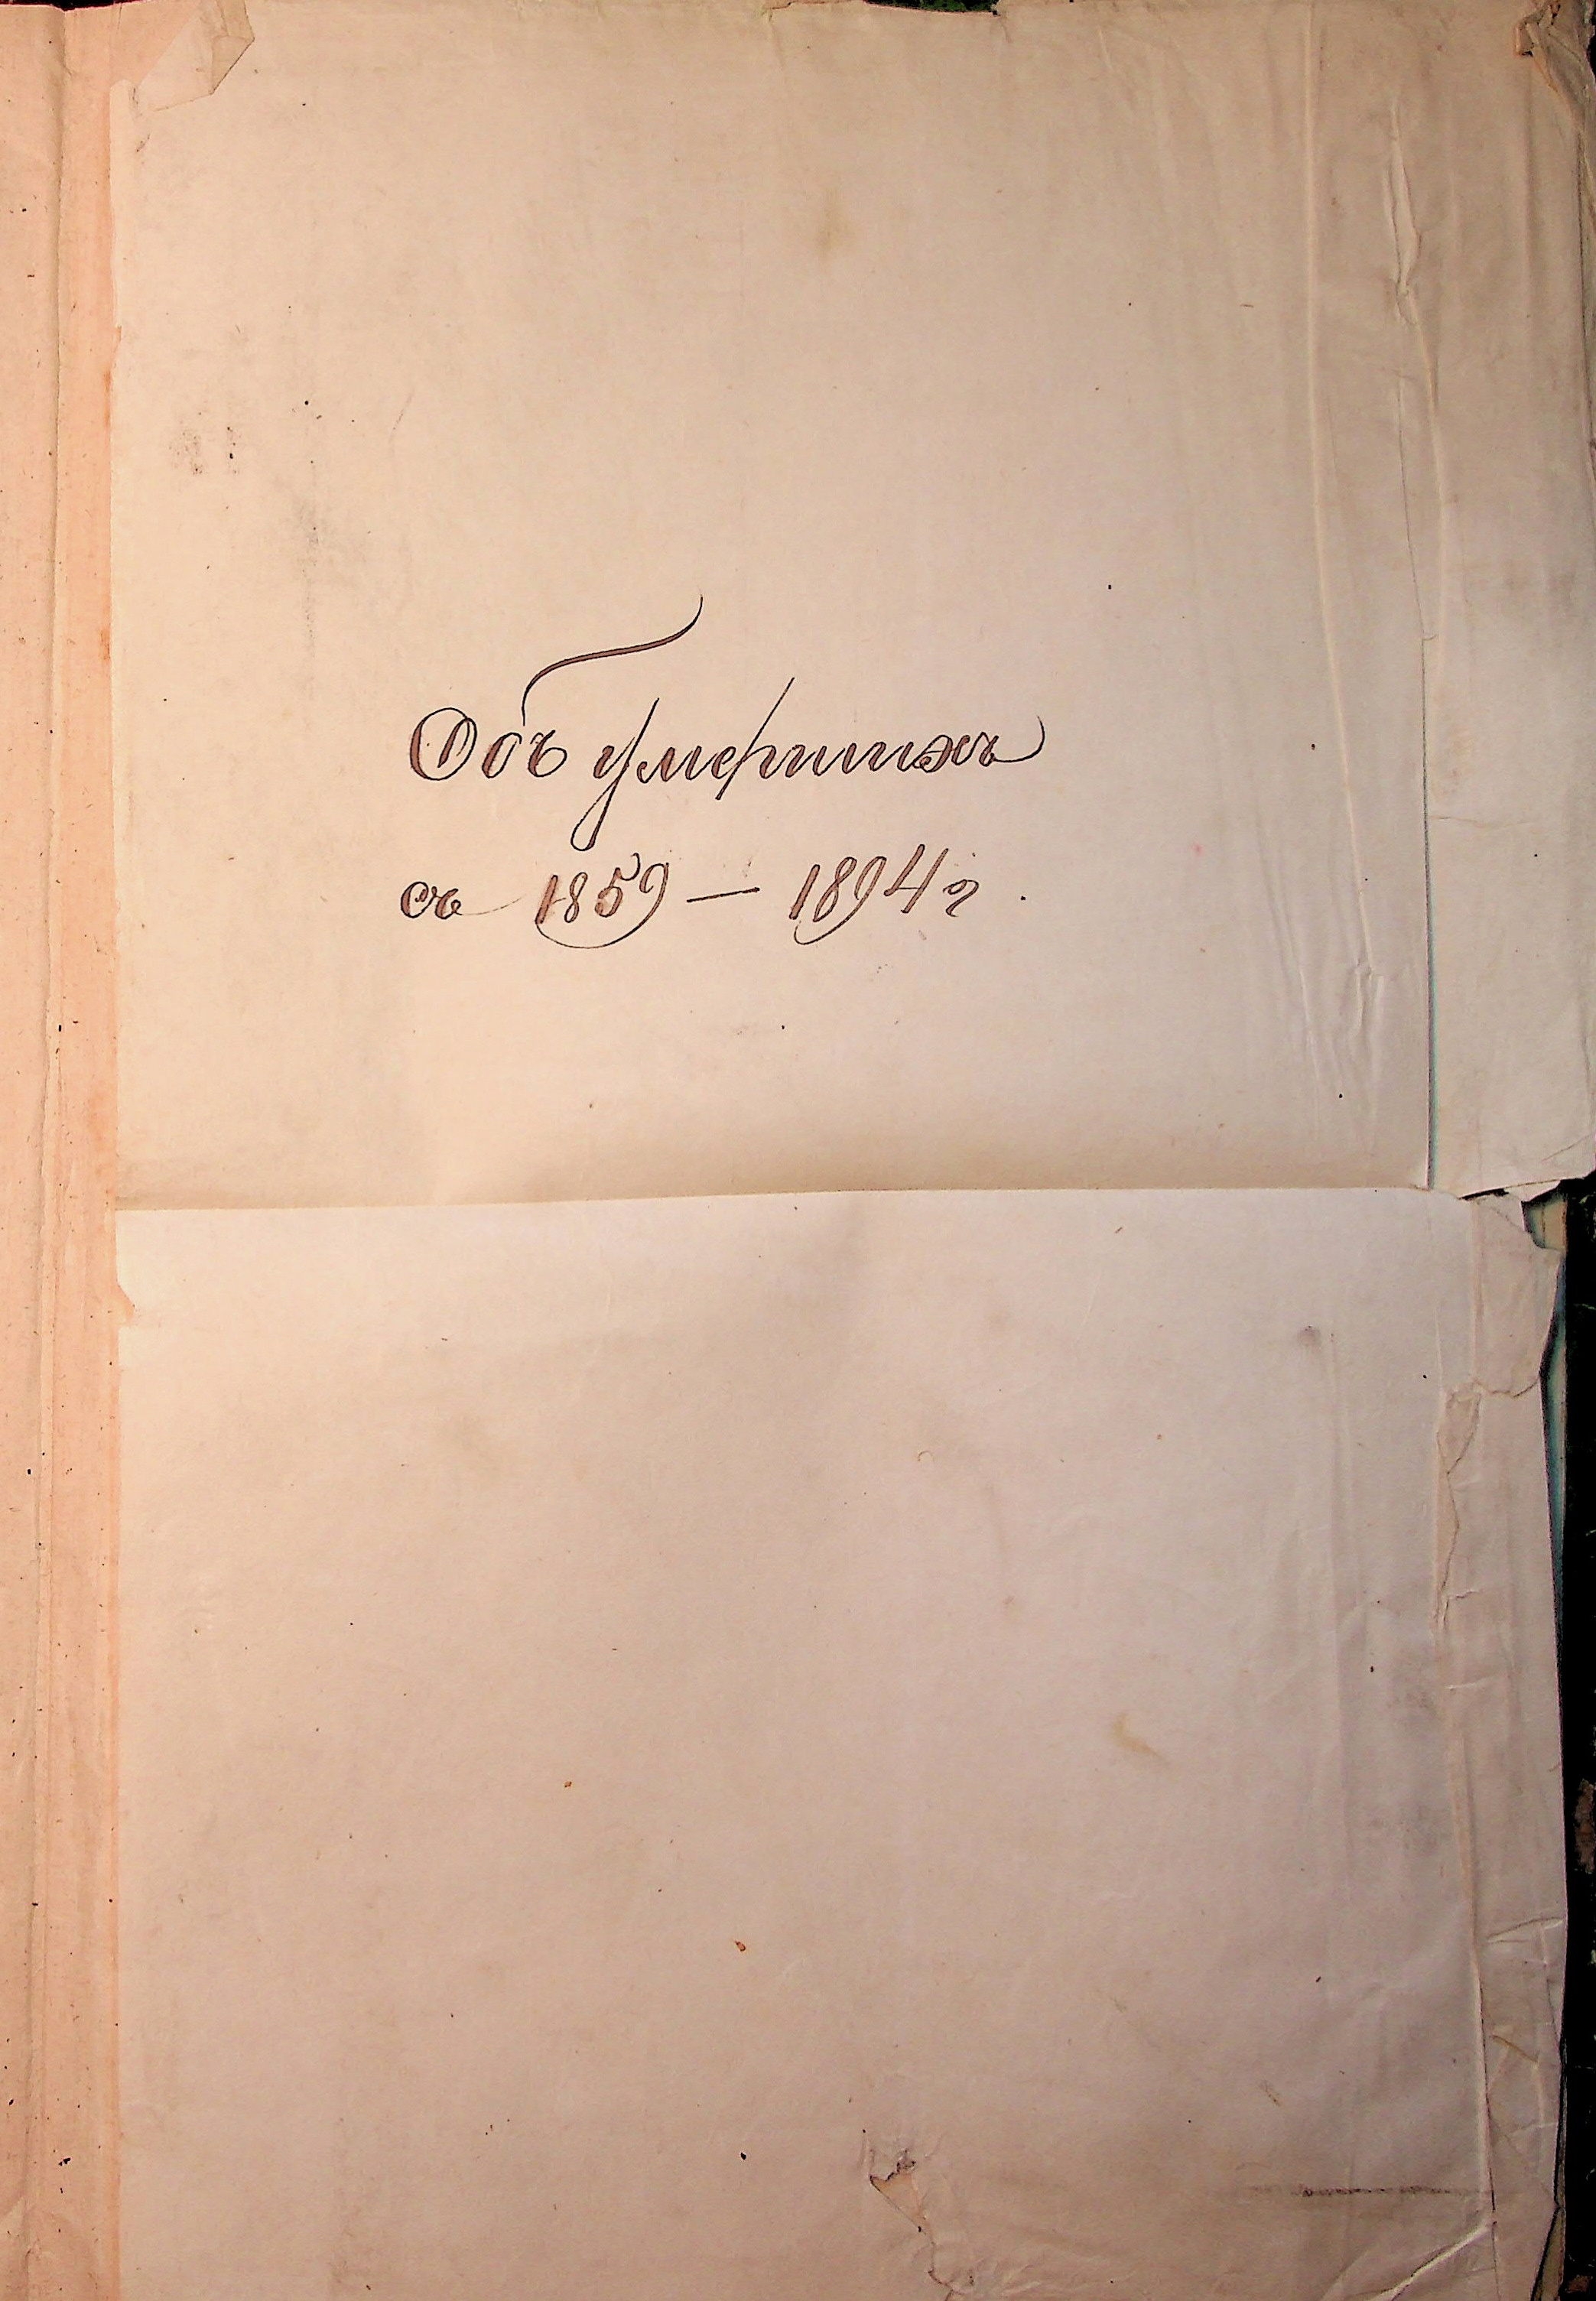 Объ умершихъ
съ 1859 — 1894 г.